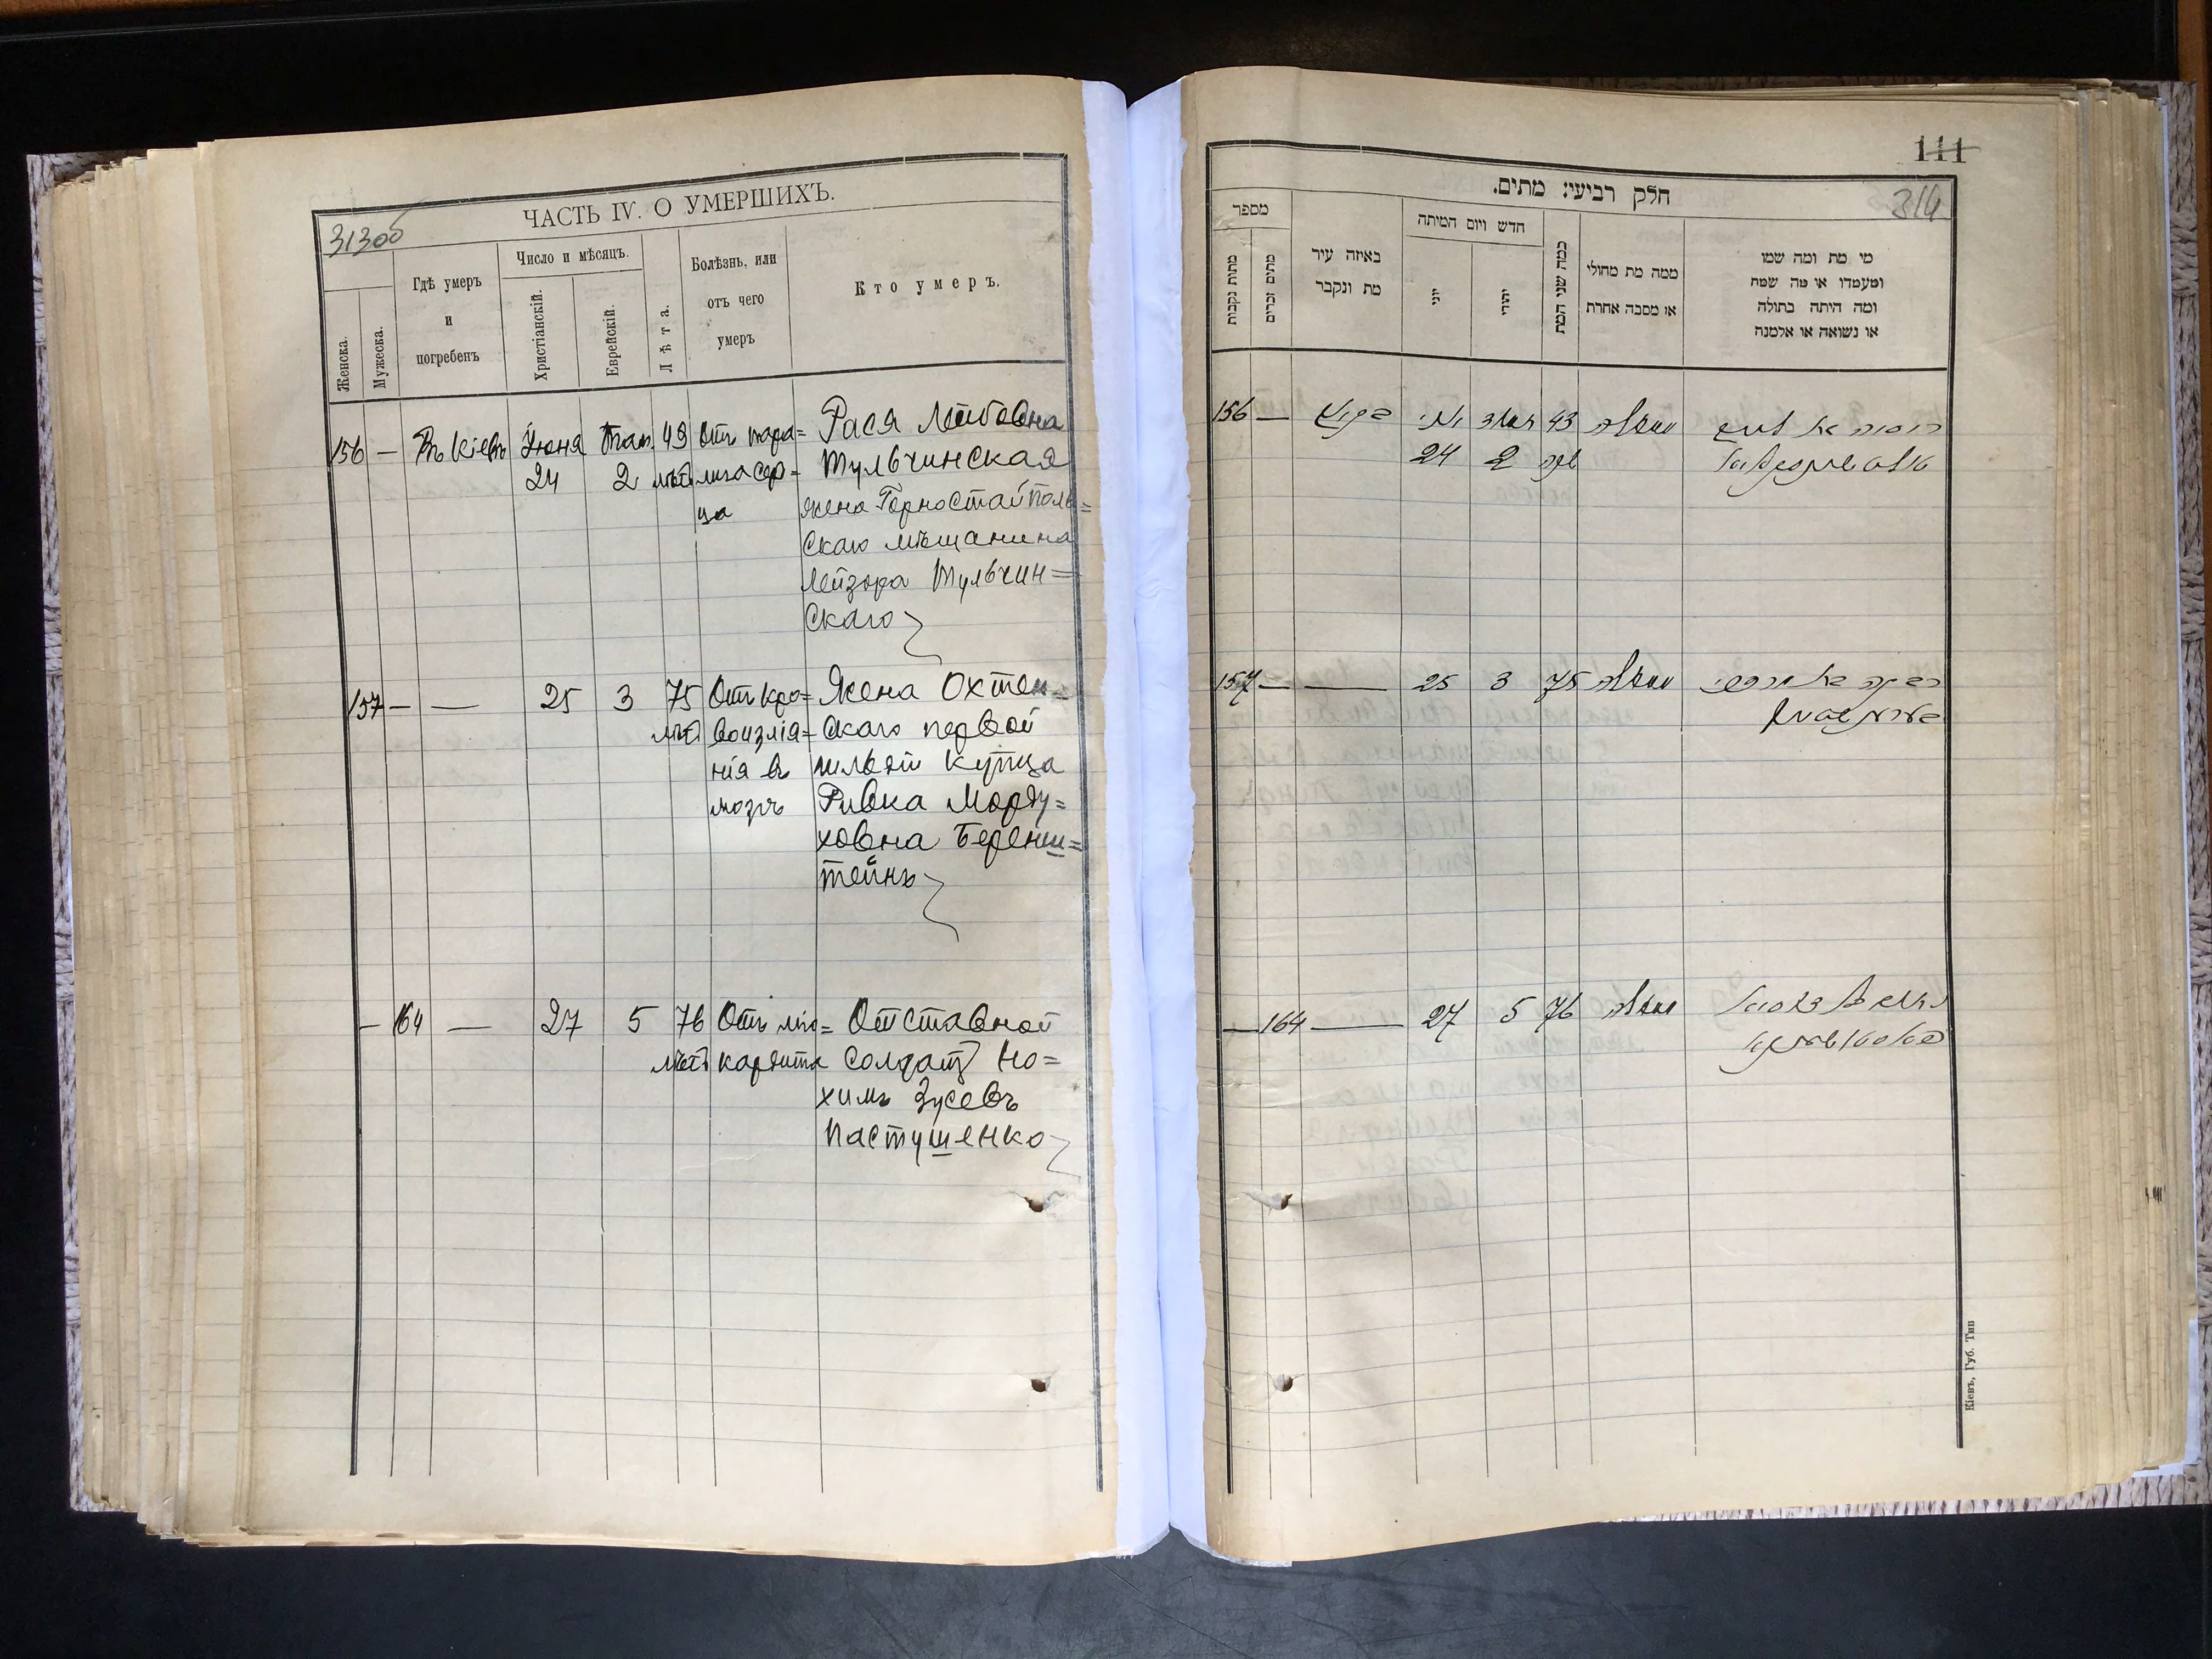 313об
ЧАСТЬ IV. О УМЕРШИХЪ.
Женска.
Мужеска.
Гдѣ умеръ
и
погребенъ
Число и мѣсяцъ.
Христіанскій.
Еврейскій.
Лѣта.
Болѣзнь, или
отъ чего
умеръ
Кто умеръ.
156 — Въ Кіевѣ Іюня Там. 43 Отъ пара= Рася Лейбовна
24 2 лѣт лича сер= Тульчинская
ца жена Горностайполь=
скаго мѣщанина
Лейзора Тульчин=
скаго
157 — — 25 3 75 Отъ кро= Жена Охтен=
лѣт воизлія= скаго первой
нія въ гильдіи купца
мозгъ РивкаМорду=
ховна Беренш=
тейнъ
— 164 — 27 5 76 Отъ міо= Отставной
лѣт кардита солдатъ Но=
химъ Зусевъ
Пастушенко
111
314
חלק רביעי: מתים.
מספר
מתות נקבות
מתים זכרים
באיזה עיר
מת ונקבר
חדש ויום המיתה
יוני
יהודי
כמה שני המת
ממה מת מחולי
או מסבה אחרת
מי מת ומה שמו
ומעמדו או מה שמה
ומה היתה בתולה
או נשואה או אלמנה
156 — 43
24 2
157 — — 25 3 75
— 164 — 27 5 76
Кіевъ, Губ. Тип